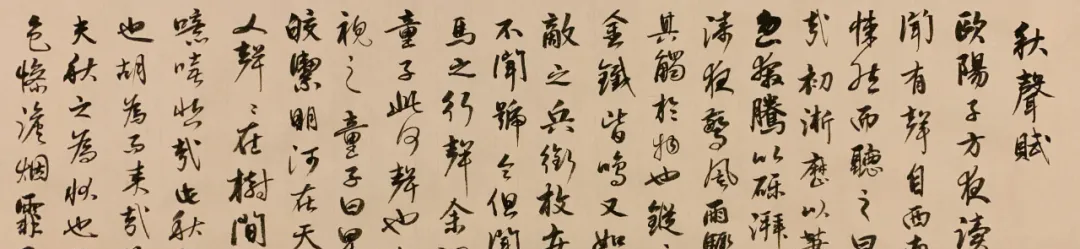 秋聲賦
歐陽子方夜讀
聞有聲自西南
悚然而聽之曰
哉初淅瀝以蕭
忽奔騰以砰湃
濤夜驚風雨驟
其觸於物也鏦
金鐵皆鳴又如
敵之兵銜枚
不聞號令但聞
馬之行聲余
童子此何聲也
視之童子曰星
皎潔明河在天
人聲〻在樹間
噫嘻悲哉此秋
也胡為而來哉
夫秋之為狀也
色慘澹烟霏